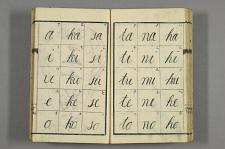 a ka sa
i ki si
u ku su
e ke se
o ko so
ta na ha
ti ni hi
tu nu hu
te ne he
to no ho